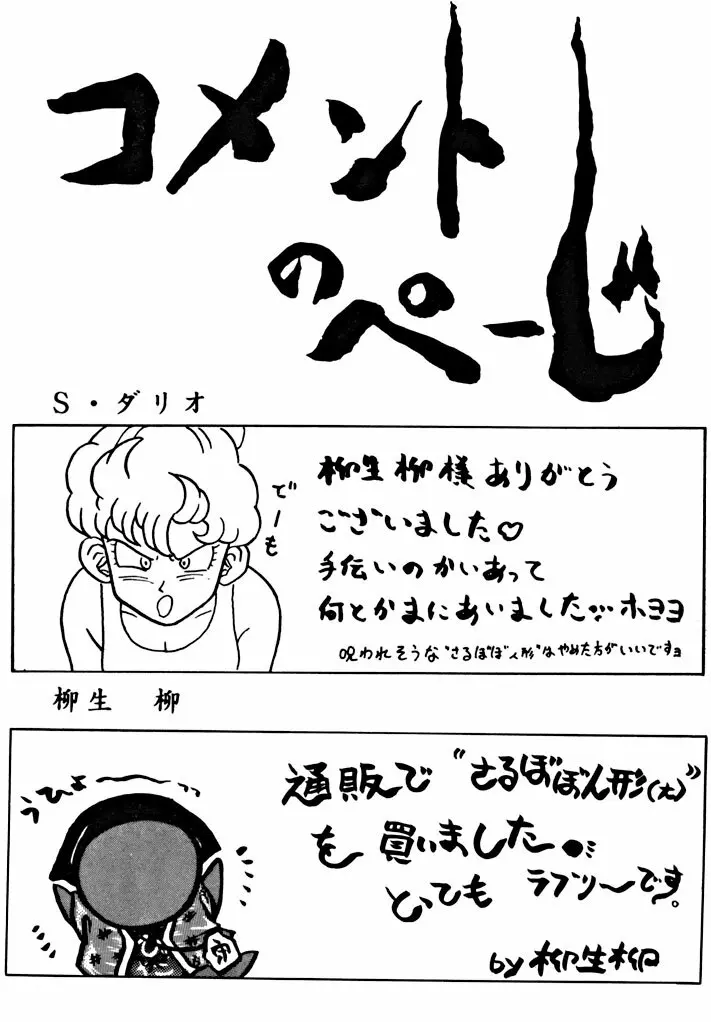 コメント
のぺーじ
S・ダリオ
どーも
柳生柳様ありがとう
ございました♡
手伝いのかいあって
何とかまにあいました。ホヨヨ
呪われそうな“さるぼぼ人形”はやめた方がいいですョ
柳生 柳
うひょ〜っ
通販で“さるぼぼ人形(大)”
を買いました
とってもラブリ〜です。
by柳生柳